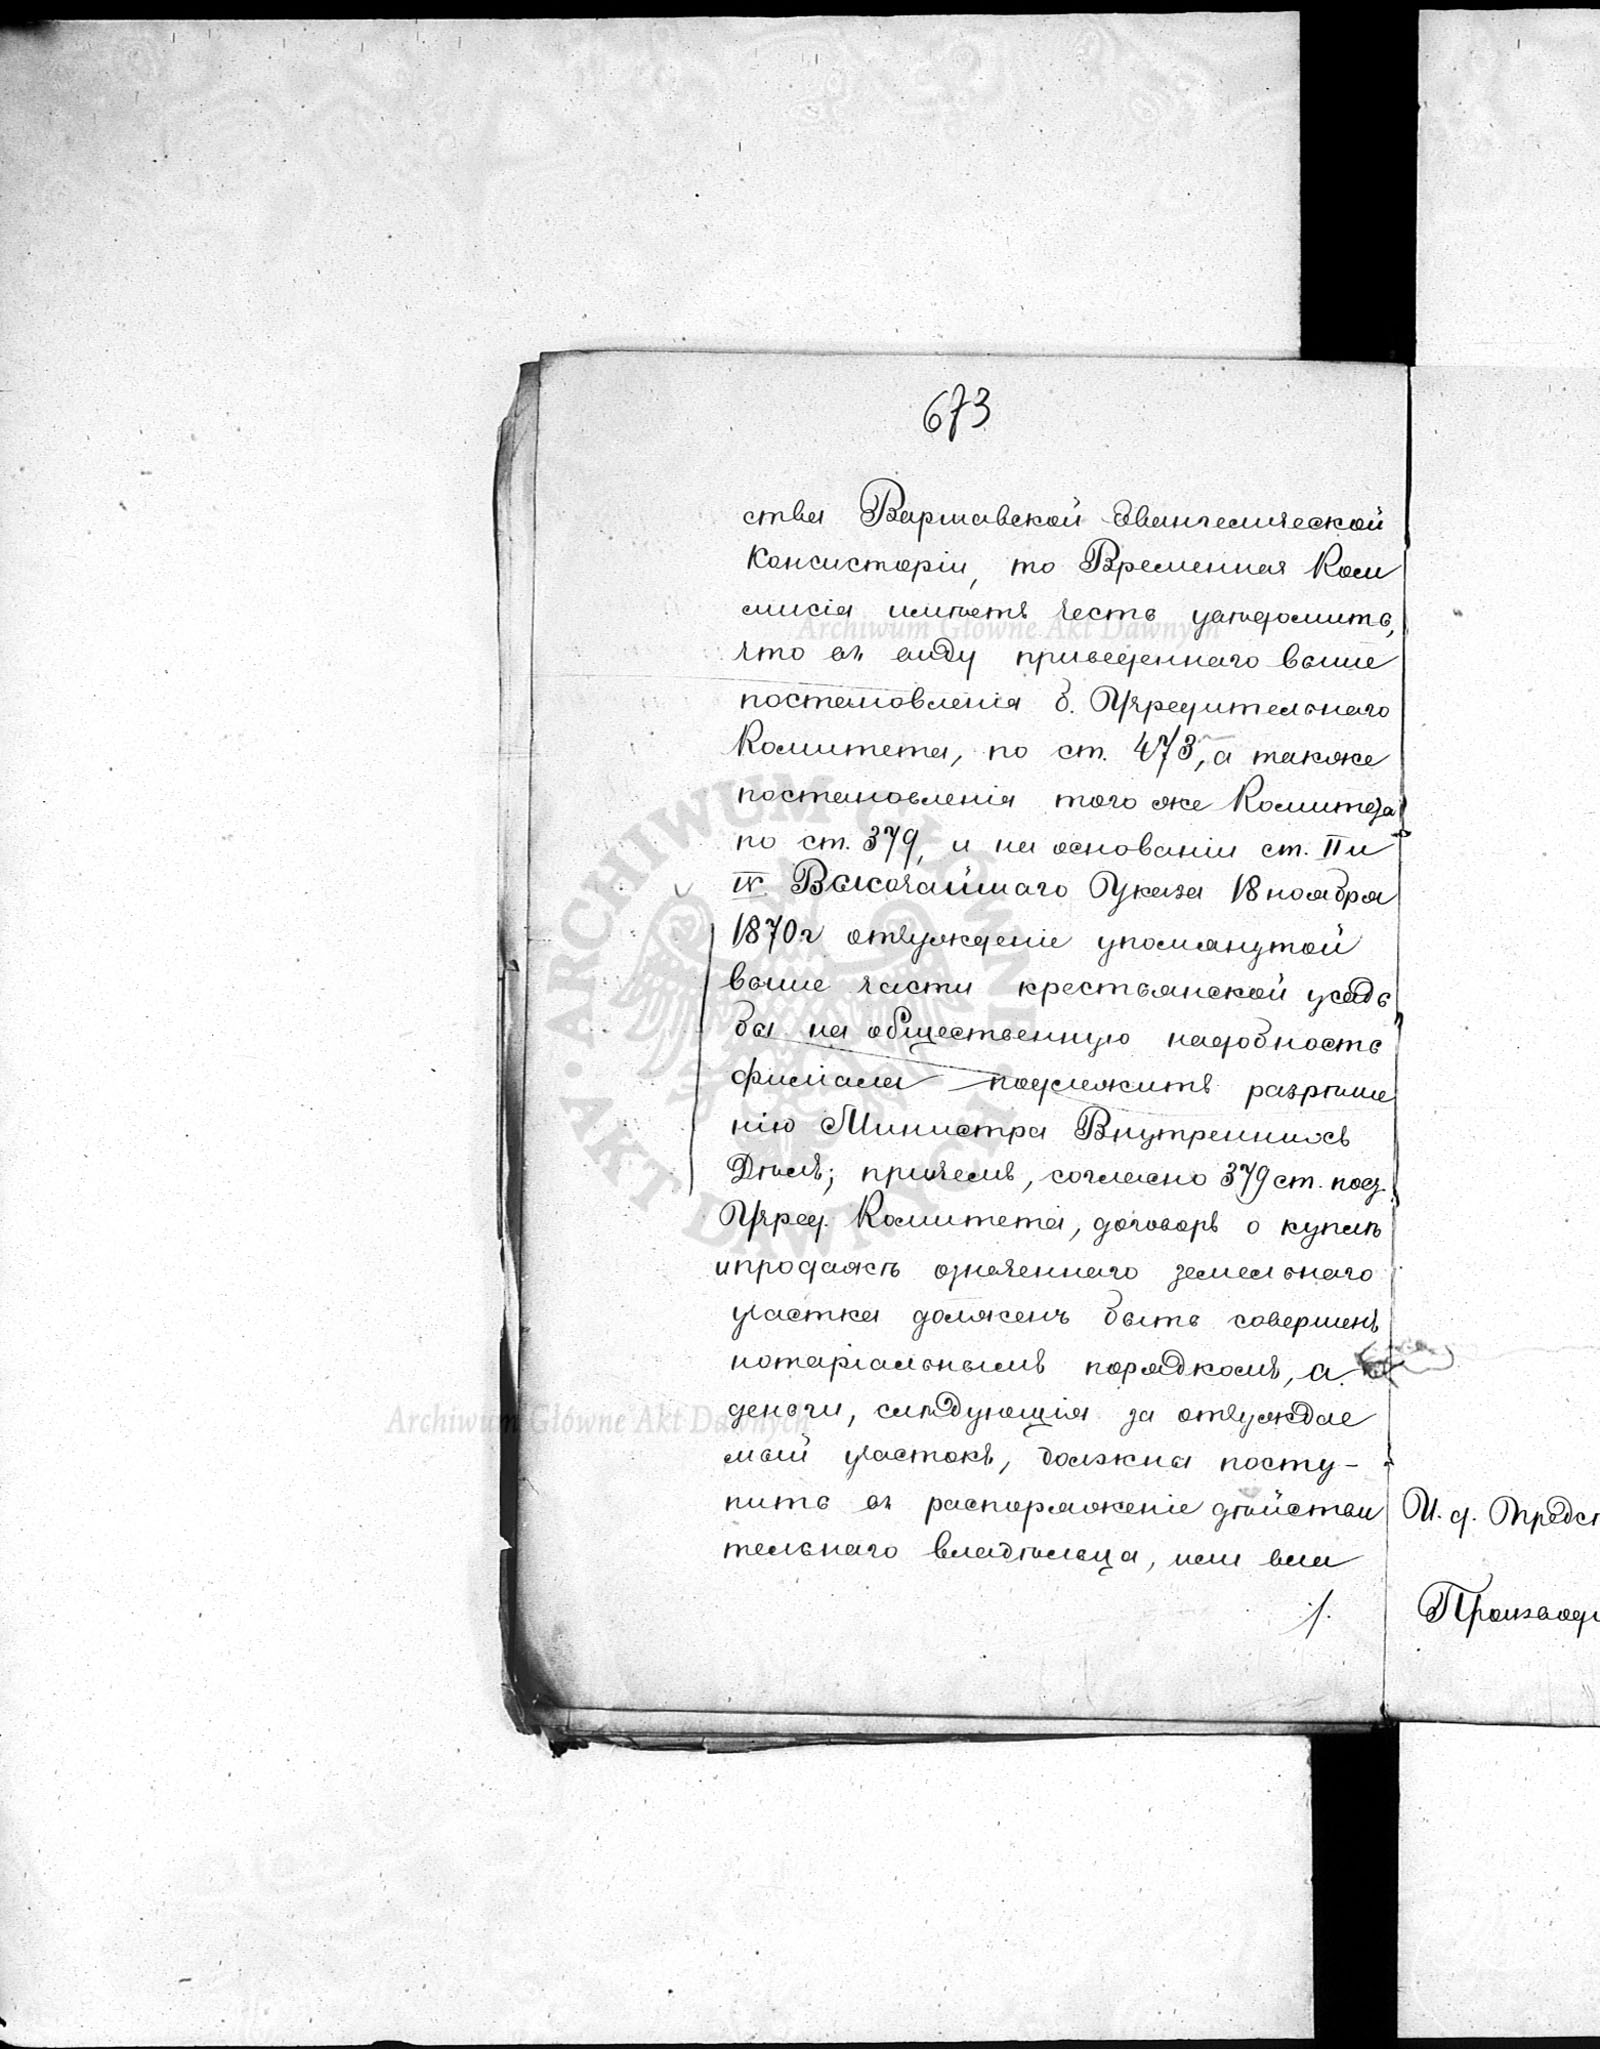 673
ства Варшавской Евангелической
Консисторіи, то Временная Ком
мисія имѣетъ честь увѣдомить,
что въ виду приведеннаго выше
постановленія б. Учредительнаго
Комитета, по ст. 473, а также
постановленія того же Комитета
по ст. 379, и на основаніи ст. II и
IV Высочайшаго Указа 18 ноября
1870 г отчужденіе упомянутой
выше части крестьянской усадь
бы на общественную надобность
филіала подлежитъ разрѣше
нію Министра Внутреннихъ
Дѣлъ; причемъ, согласно 379 ст. пос.
Учред. Комитета, договоръ о куплѣ
и продажѣ означеннаго земельнаго
участка долженъ быть совершенъ
нотаріальнымъ порядкомъ, а
деньги, слѣдующія за отчуждае
мый участокъ, должны посту-
пить въ распоряженіе дѣйстви
тельнаго владѣльца, или вла
./.
И. д. Предс
Производи
Archiwum Główne Akt Dawnych
ARCHIWUM GŁÓWNE AKT DAWNYCH
Archiwum Główne Akt Dawnych